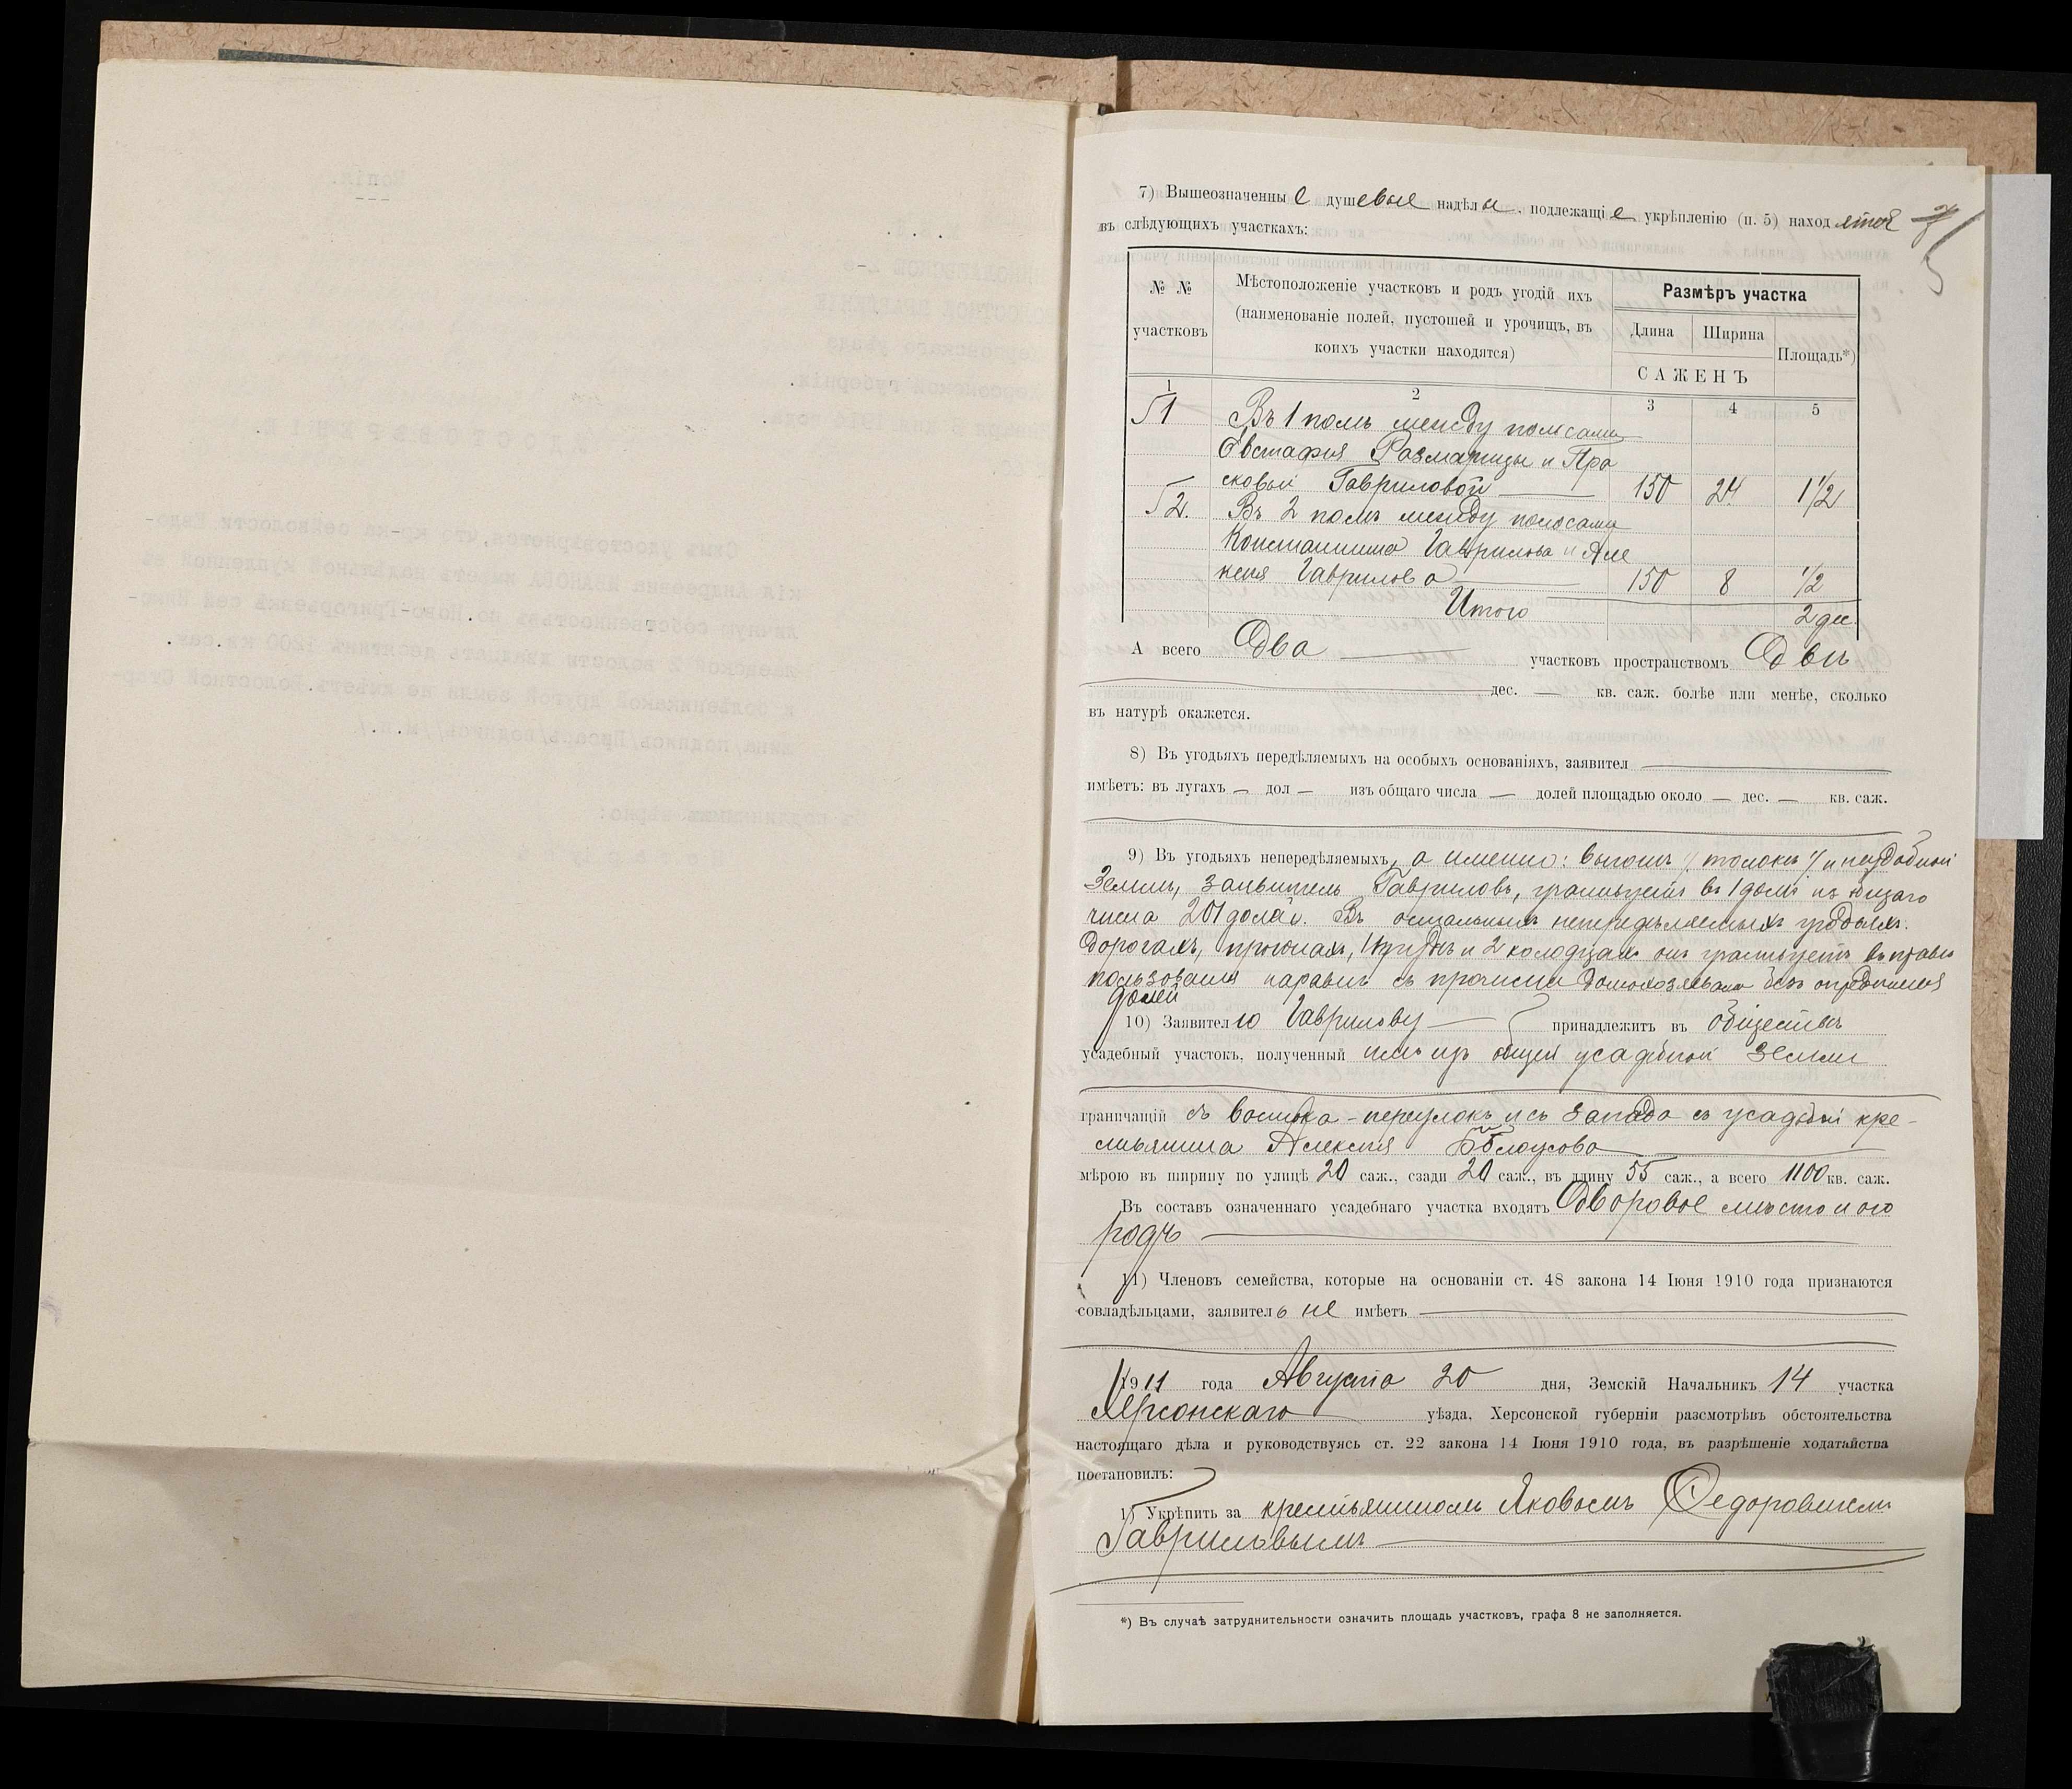 7) Вышеозначенные душевые надѣлы, подлежащіе укрѣпленію (п. 5) находятся
въ слѣдующихъ участкахъ:
5
№ № участковъ
Мѣстоположеніе участковъ и родъ угодій ихъ
(наименованіе полей, пустошей и урочищъ, въ
коихъ участки находятся)
Размѣръ участка
Длина Ширина Площадь*)
САЖЕНЪ
1 2 3 4 5
1 Въ 1 полѣ между полосами
Евстафія Размарицы и Пра
сковьи Гавриловой 150 24 1 1/2
2. Въ 2 полѣ между полосами
Константина Гаврилова и Але
ксѣя Гаврилова 150 8 1/2
Итого 2 дес.
А всего Два участковъ пространствомъ Двѣ
дес. — кв. саж. болѣе или менѣе, сколько
въ натурѣ окажется.
8) Въ угодьяхъ передѣляемыхъ на особыхъ основаніяхъ, заявител
имѣетъ: въ лугахъ — дол — изъ общаго числа — долей площадью около — дес. — кв. саж.
9) Въ угодьяхъ непередѣляемыхъ, а именно: выгонѣ /толокѣ/ и неудобной
землѣ, заявитель Гавриловъ, участвуетъ въ 1 долѣ изъ общаго
числа 201 долей. Въ остальныхъ непередѣляемыхъ угодьяхъ:
дорогахъ, прогонахъ, 1 прудѣ и 2 колодцахъ онъ участвуетъ въ правѣ
пользованія наравнѣ съ прочими домохозяевами безъ опредѣленія
долей
10) Заявителю Гаврилову принадлежитъ въ обществѣ
усадебный участокъ, полученный имъ изъ общей усадебной земли
граничащій съ востока - переулокъ и съ запада съ усадьбой кре-
стьянина Алексѣя Бѣлоусова
мѣрою въ ширину по улицѣ 20 саж., сзади 20 саж., въ длину 55 саж., а всего 1100 кв. саж.
Въ составъ означеннаго усадебнаго участка входятъ Дворовое мѣсто и ого
родъ
11) Членовъ семейства, которые на основаніи ст. 48 закона 14 Іюня 1910 года признаются
совладѣльцами, заявитель не имѣетъ
1911 года Августа 20 дня, Земскій Начальникъ 14 участка
Херсонскаго уѣзда, Херсонской губерніи разсмотрѣвъ обстоятельства
настоящаго дѣла и руководствуясь ст. 22 закона 14 Іюня 1910 года, въ разрѣшеніе ходатайства
постановилъ:
1) Укрѣпить за крестьяниномъ Яковомъ Федоровичемъ
Гавриловымъ
*) Въ случаѣ затруднительности означить площадь участковъ, графа 8 не заполняется.